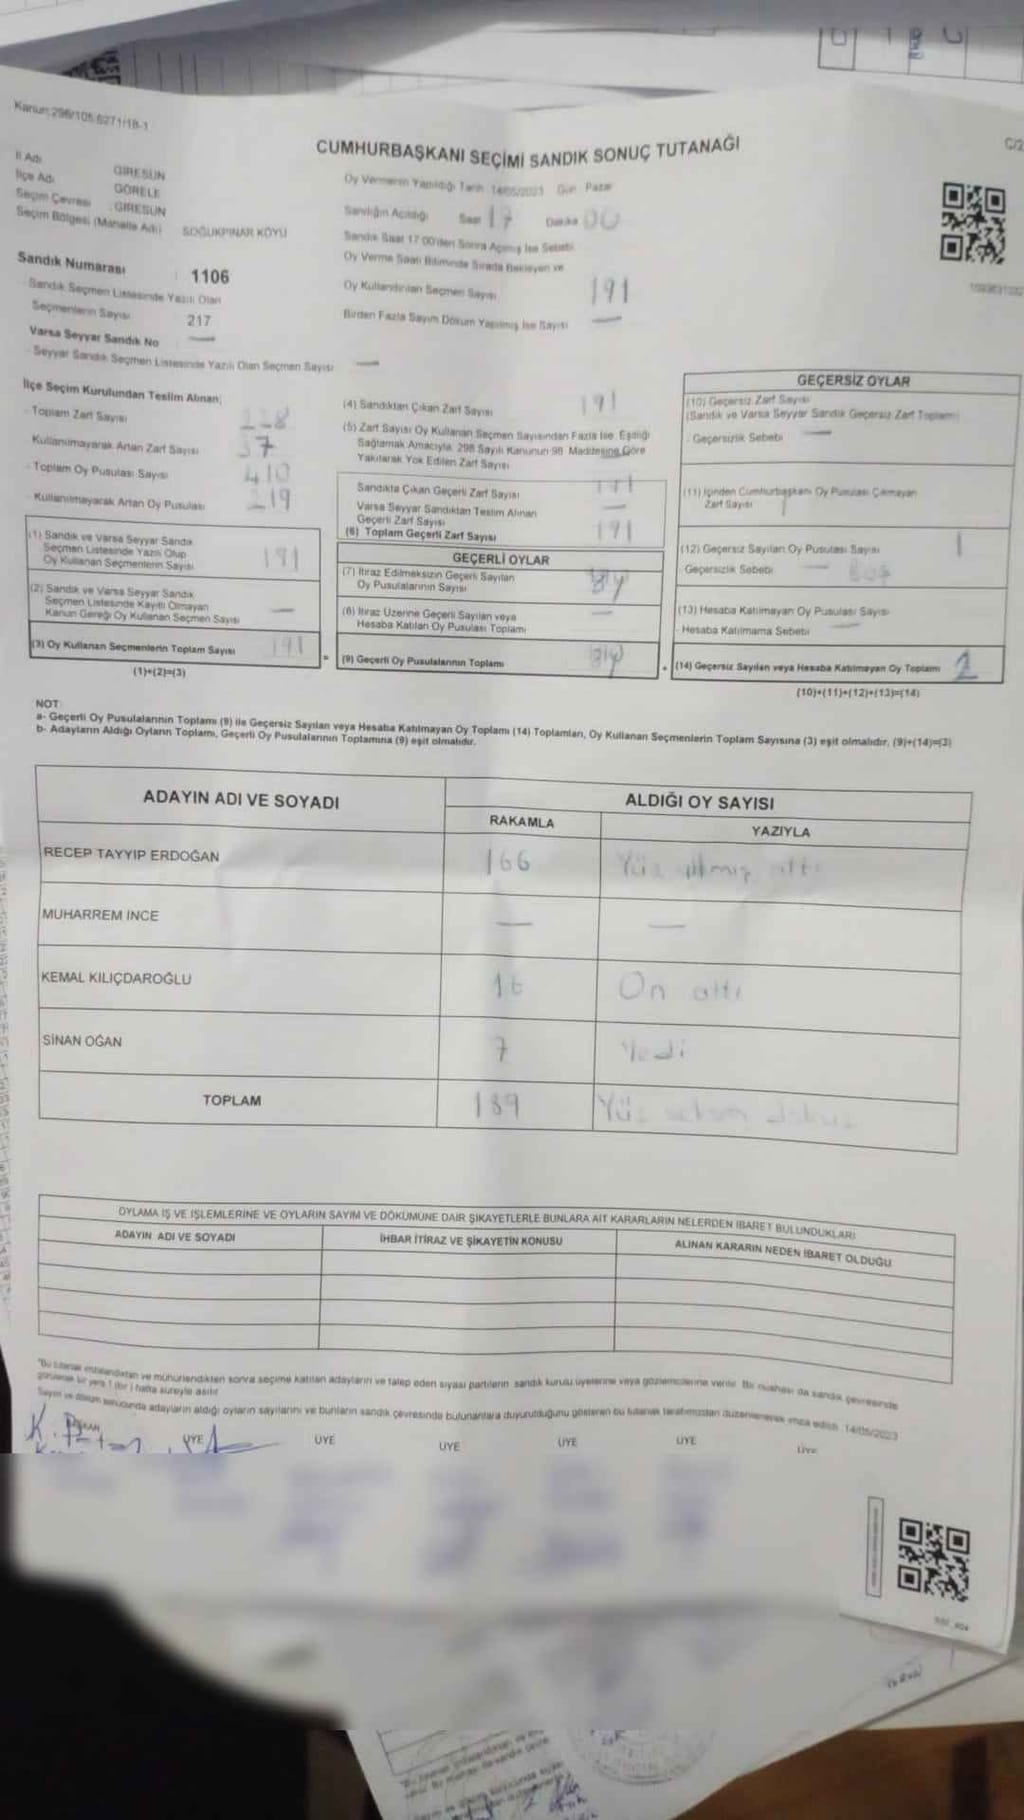 Kanun:298/105 6271/18-1
CUMHURBAŞKANI SEÇİMİ SANDIK SONUÇ TUTANAĞI
C/2
İl Adı GİRESUN
İlçe Adı GÖRELE
Seçim Çevresi GİRESUN
Seçim Bölgesi (Mahalle Adı) SOĞUKPINAR KÖYÜ
Sandık Numarası 1106
Sandık Seçmen Listesinde Yazılı Olan
Seçmenlerin Sayısı 217
Varsa Seyyar Sandık No —
- Seyyar Sandık Seçmen Listesinde Yazılı Olan Seçmen Sayısı —
Oy Vermenin Yapıldığı Tarih 14/05/2023 Gün Pazar
Sandığın Açıldığı Saat 17 Dakika 00
Sandık Saat 17:00'den Sonra Açılmış İse Sebebi
Oy Verme Saati Bitiminde Sırada Bekleyen ve
Oy Kullandırılan Seçmen Sayısı 191
Birden Fazla Sayım Döküm Yapılmış İse Sayısı —
İlçe Seçim Kurulundan Teslim Alınan;
- Toplam Zarf Sayısı
Kullanılmayarak Artan Zarf Sayısı 37
- Toplam Oy Pusulası Sayısı 410
- Kullanılmayarak Artan Oy Pusulası 219
(1) Sandık ve Varsa Seyyar Sandık
Seçmen Listesinde Yazılı Olup
Oy Kullanan Seçmenlerin Sayısı 191
(2) Sandık ve Varsa Seyyar Sandık
Seçmen Listesinde Kayıtlı Olmayan
Kanun Gereği Oy Kullanan Seçmen Sayısı —
(3) Oy Kullanan Seçmenlerin Toplam Sayısı 191
(1)+(2)=(3)
(4) Sandıktan Çıkan Zarf Sayısı 191
(5) Zarf Sayısı Oy Kullanan Seçmen Sayısından Fazla İse, Eşitliği
Sağlamak Amacıyla, 298 Sayılı Kanunun 98. Maddesine Göre
Yakılarak Yok Edilen Zarf Sayısı
Sandıkta Çıkan Geçerli Zarf Sayısı
Varsa Seyyar Sandıktan Teslim Alınan
Geçerli Zarf Sayısı —
(6) Toplam Geçerli Zarf Sayısı 191
GEÇERLİ OYLAR
(7) İtiraz Edilmeksizin Geçerli Sayılan
Oy Pusulalarının Sayısı
(8) İtiraz Üzerine Geçerli Sayılan veya
Hesaba Katılan Oy Pusulası Toplamı —
= (9) Geçerli Oy Pusulalarının Toplamı
GEÇERSİZ OYLAR
(10) Geçersiz Zarf Sayısı
(Sandık ve Varsa Seyyar Sandık Geçersiz Zarf Toplamı)
- Geçersizlik Sebebi —
(11) İçinden Cumhurbaşkanı Oy Pusulası Çıkmayan
Zarf Sayısı
(12) Geçersiz Sayılan Oy Pusulası Sayısı 1
Geçersizlik Sebebi
(13) Hesaba Katılmayan Oy Pusulası Sayısı
- Hesaba Katılmama Sebebi —
+ (14) Geçersiz Sayılan veya Hesaba Katılmayan Oy Toplamı 2
(10)+(11)+(12)+(13)=(14)
NOT:
a- Geçerli Oy Pusulalarının Toplamı (9) ile Geçersiz Sayılan veya Hesaba Katılmayan Oy Toplamı (14) Toplamları, Oy Kullanan Seçmenlerin Toplam Sayısına (3) eşit olmalıdır. (9)+(14)=(3)
b- Adayların Aldığı Oyların Toplamı, Geçerli Oy Pusulalarının Toplamına (9) eşit olmalıdır.
ADAYIN ADI VE SOYADI
ALDIĞI OY SAYISI
RAKAMLA YAZIYLA
RECEP TAYYIP ERDOĞAN 166 Yüz altmış altı
MUHARREM İNCE — —
KEMAL KILIÇDAROĞLU 16 On altı
SİNAN OĞAN 7 Yedi
TOPLAM 189 Yüz seksen dokuz
OYLAMA İŞ VE İŞLEMLERİNE VE OYLARIN SAYIM VE DÖKÜMÜNE DAİR ŞİKAYETLERLE BUNLARA AİT KARARLARIN NELERDEN İBARET BULUNDUKLARI
ADAYIN ADI VE SOYADI İHBAR İTİRAZ VE ŞİKAYETİN KONUSU ALINAN KARARIN NEDEN İBARET OLDUĞU
*Bu tutanak imzalandıktan ve mühürlendikten sonra seçime katılan adayların ve talep eden siyasi partilerin sandık kurulu üyelerine veya gözlemcilerine verilir. Bir nüshası da sandık çevresinde
görülecek bir yere 1 (bir) hafta süreyle asılır.
Sayım ve döküm sonucunda adayların aldığı oyların sayılarını ve bunların sandık çevresinde bulunanlara duyurulduğunu gösteren bu tutanak tarafımızdan düzenlenerek imza edildi. 14/05/2023
ÜYE ÜYE ÜYE ÜYE ÜYE ÜYE